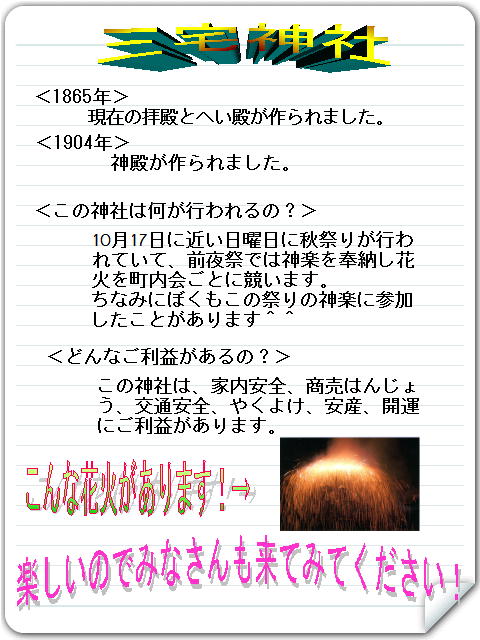 三宅神社
＜1865年＞
現在の拝殿とへい殿が作られました。
＜1904年＞
神殿が作られました。
＜この神社は何が行われるの？＞
10月17日に近い日曜日に秋祭りが行わ
れていて、前夜祭では神楽を奉納し花
火を町内会ごとに競います。
ちなみにぼくもこの祭りの神楽に参加
したことがあります＾＾
＜どんなご利益があるの？＞
この神社は、家内安全、商売はんじょ
う、交通安全、やくよけ、安産、開運
にご利益があります。
こんな花火があります！→
楽しいのでみなさんも来てみてください！